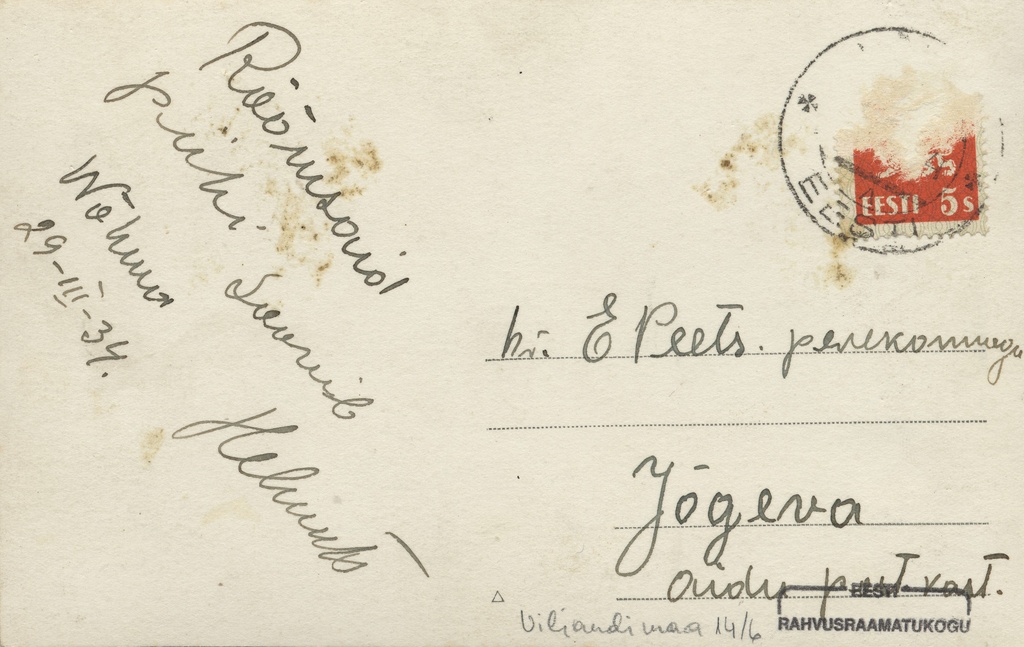 Rõõmsaid
pühi. Soovib
Helmut
Wõhma
29-III-34.
EESTI 5 s
EESTI
hr. E Peets. perekonnaga
Jõgeva
aidu postkast.
Viljandimaa 14/6
EESTI
RAHVUSRAAMATUKOGU